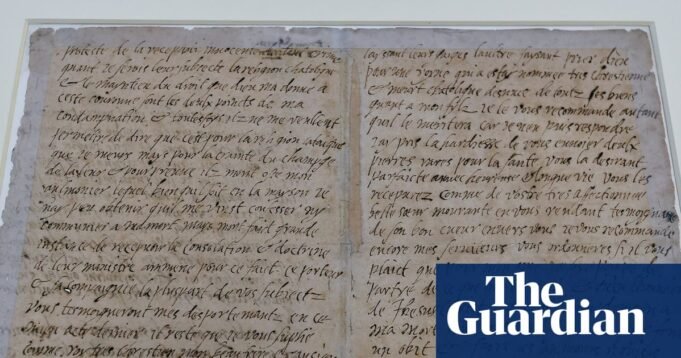 proteste de la recepuoir innocente de tout crime
quant ie serois leur subiecte la religion chatolique
& le mayntien du droit que dieu ma donne a
ceste couronne sont les deulx points de ma
condampnation & toutesfoys ilz ne me veulent
permettre de dire que cest pour la religion catolique
que ie meurs mays pour la crainte du champge
de la leur & pour preuve ilz mont oste mon
aulmonier lequel bien quil soit en la mayson ie
nay peu obtenir quil me vinst confesser ny
communier a ma mort mays mont faict grande
instance de recepvoir la consolation & doctrine
de leur ministre ammene pour ce faict ce porteur
& sa compaignie la pluspart de vos subiectz
vous tesmoigneront mes desportemantz en ce
acte dernier il reste que ie vous suplie
comme roy tres crestien mon beau frere &
gaiges laultre faysant prier dieu
pour une royne qui a estay nommee tres crestienne
& meurt chatolique desnuee de toutz ses biens
quant a mon fylz ie le vous recommande autant
quil le meritera car ie nen puis respondre
iay pris la hardiesse de vous envoier deulx
pierres rares pour la sante vous la desirant
parfaicte avec heureuse & longue vie vous les
recepvrez comme de vostre tres affectionnee
belle sœur mourante en vous rendant tesmoygnasge
de son bon cueur envers vous ie vous recommande
encore mes serviteurs vous ordonneres si il vous
plaict que
partye de
de
ma mort
un obit
The
Guardian